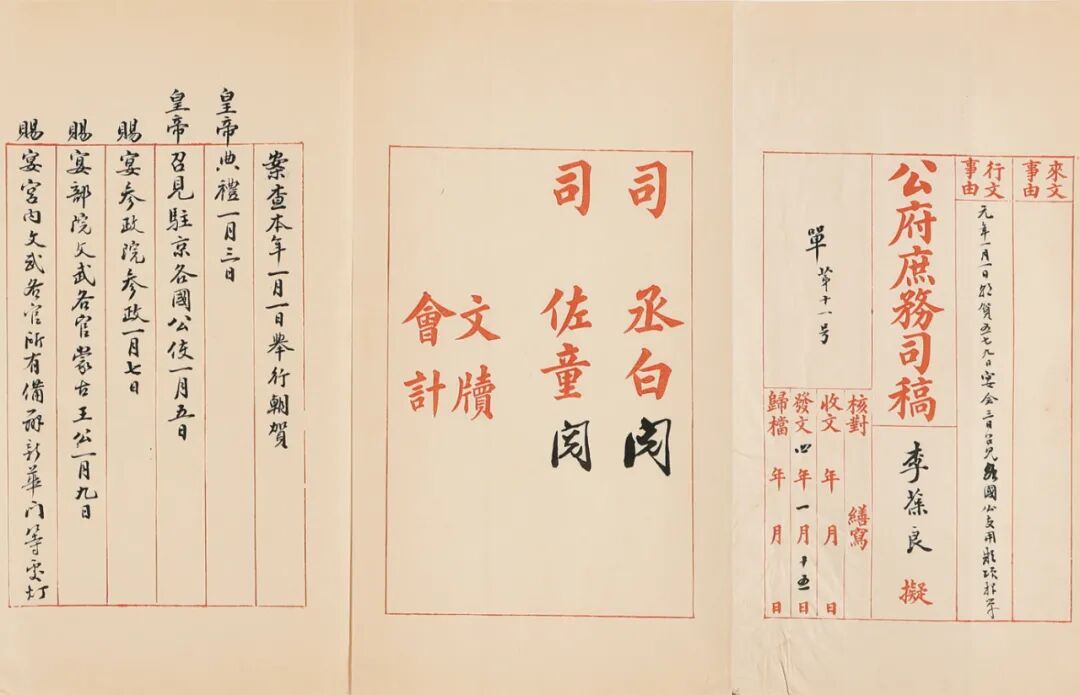 來文事由
行文事由
元年一月一日朝賀五七九日宴会三日召見各國公使用款項
公府庶務司稿 李葆良 擬
核對 繕寫
收文 年 月 日
發文 四年一月十五日
歸檔 年 月 日
單 第十一号
司丞白 閱
司佐童 閱
文牘
會計
案查本年一月一日舉行朝賀
皇帝典禮一月三日
皇帝召見駐京各國公使一月五日
賜宴參政院參政一月七日
賜宴部院文武各官蒙古王公一月九日
賜宴宮內文武各官所有備辦新華门等電灯